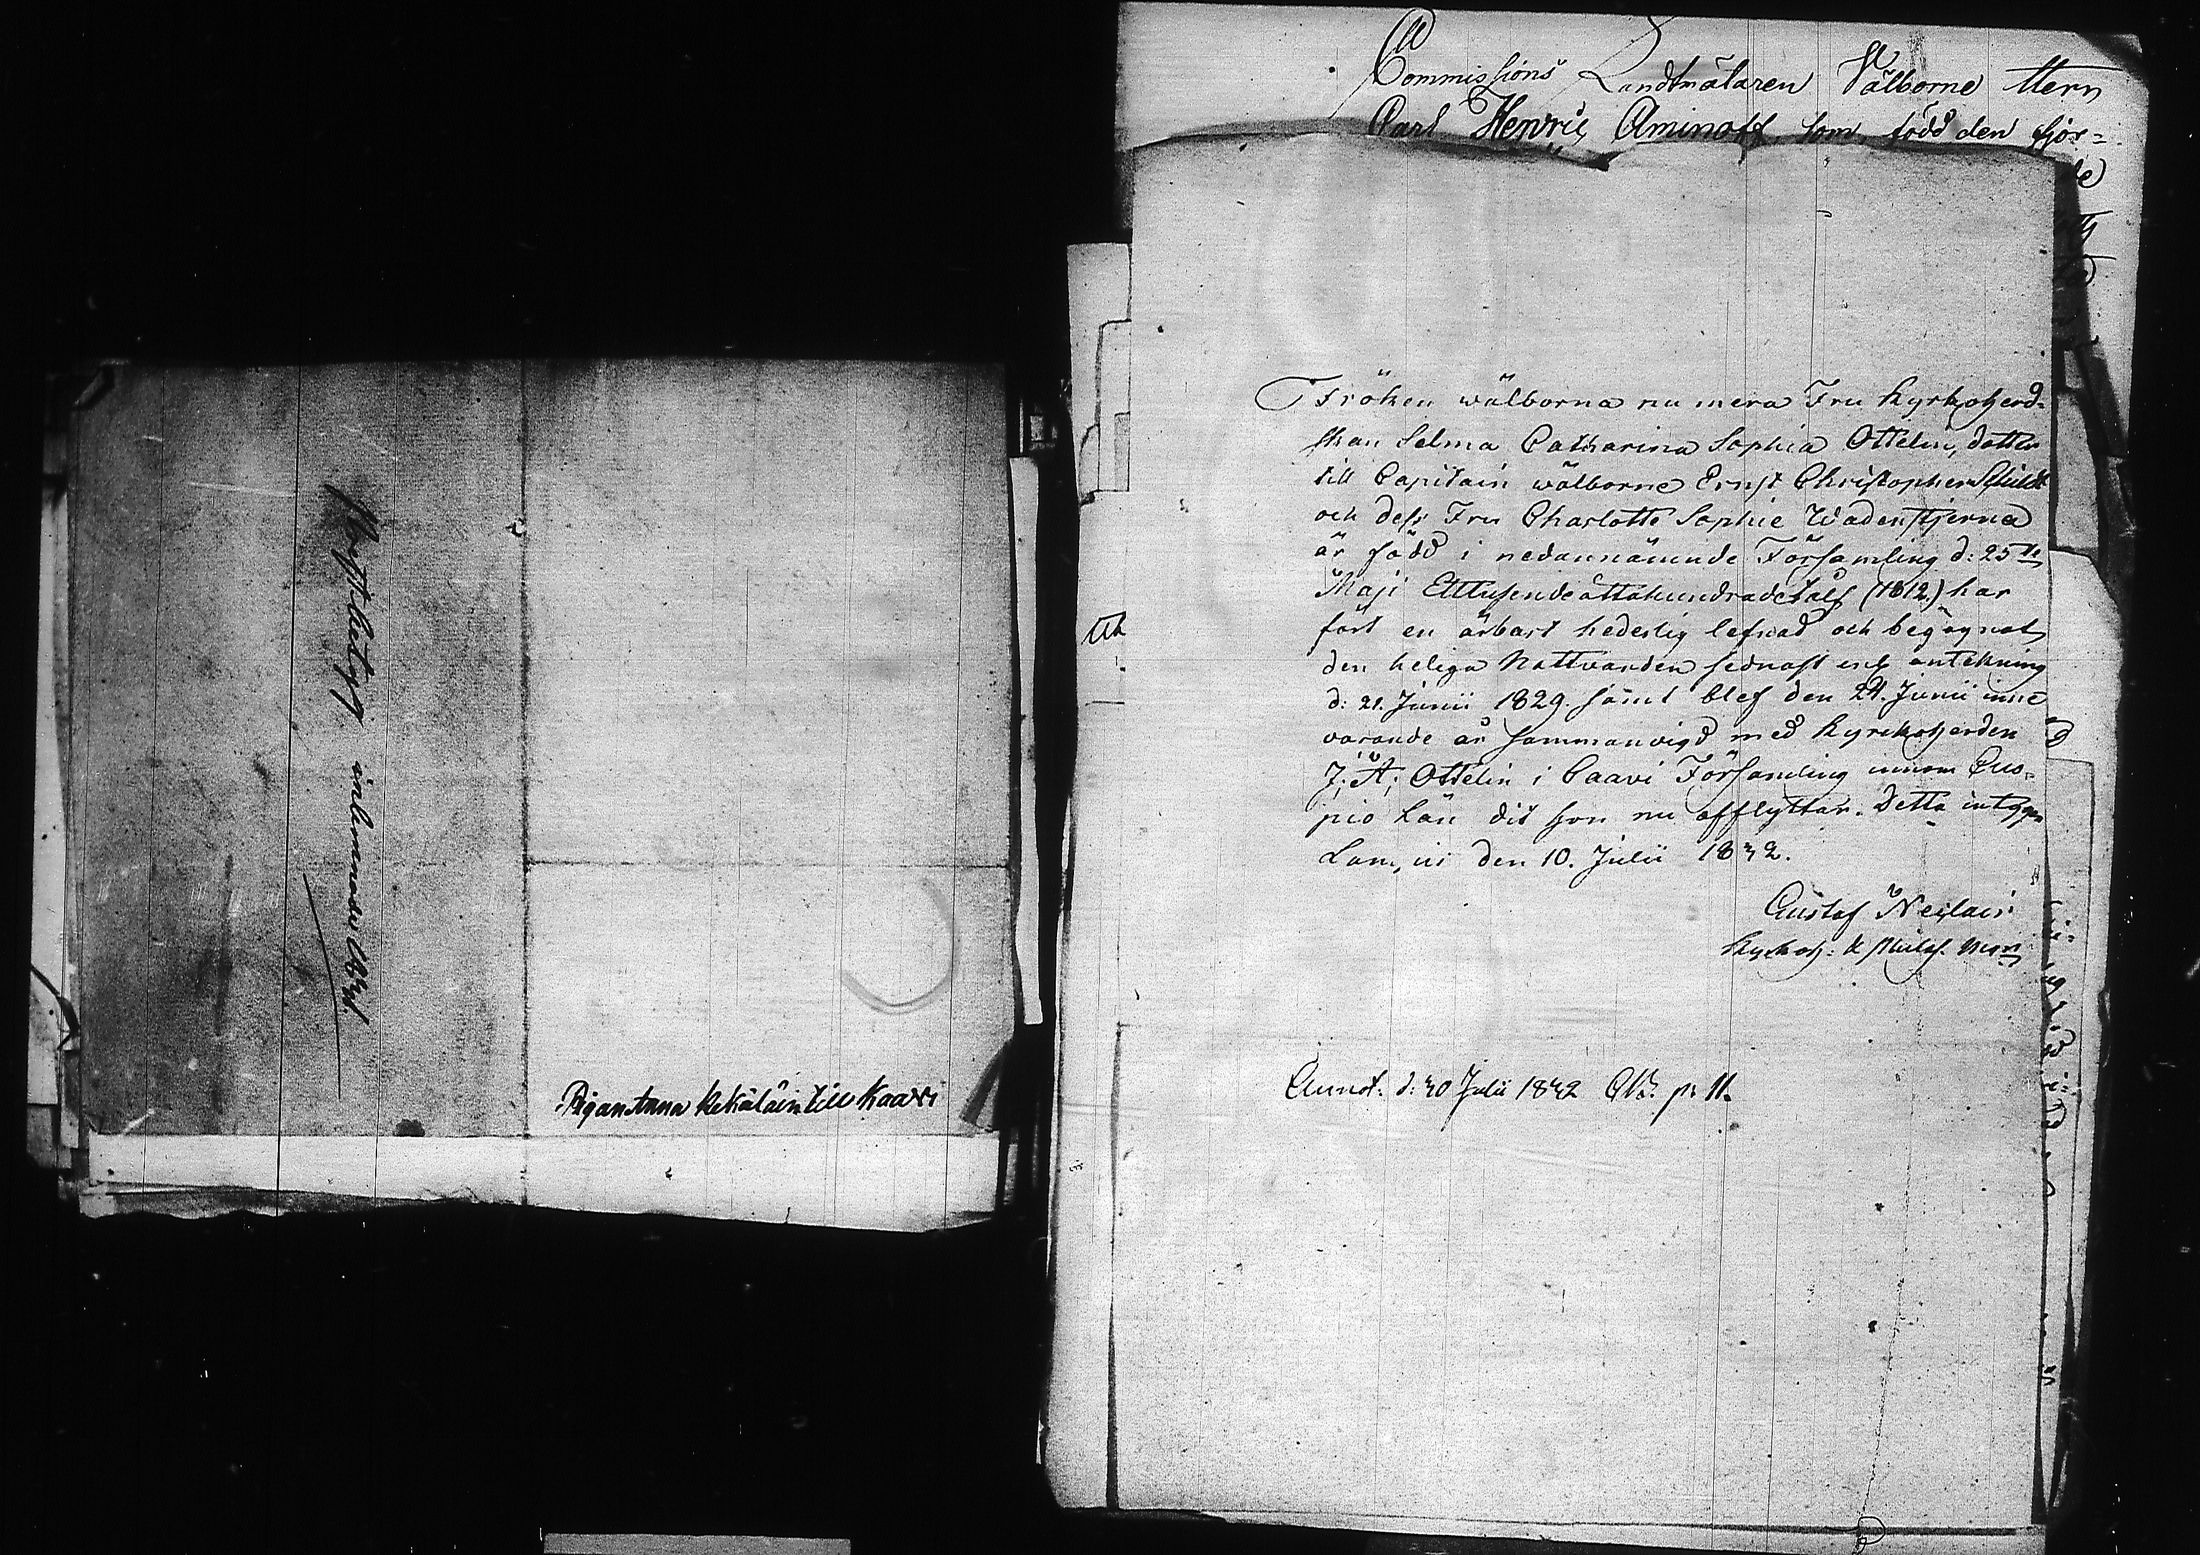 inlemnade
Pigan Anna Kekäläin till Kaavi
Commissions Landtmätaren Välborne Herr
Carl Henric Aminoff som född den fjor=
Fröken wälborna nu mera Fru Kyrkoherd=
skan Selma Catharina Sophia Ottelin, dotter
till Capitain wälborne Ernst Christopher Schildt
och dess Fru Charlotte Sophie Wadenstjerna
är född i nedannämnde Församling d: 25te
Maji Ettusendeåttahundradetolf (1812.) har
fört en ärbart hederlig lefnad och begagnat
den heliga Nattvarden sednast enl antekning
d: 21. Junii 1829. samt blef den 24. Junii inne
varande år sammanvigd med Kyrkoherden
J: A: Ottelin i Caavi Församling innom Cuo=
pio Län dit hon nu afflyttar. Detta intygar
den 10. Julii 1832.
Gustaf
Kyrkoh:
Annot. d: 30 Julii 1832 CB. p: 11.